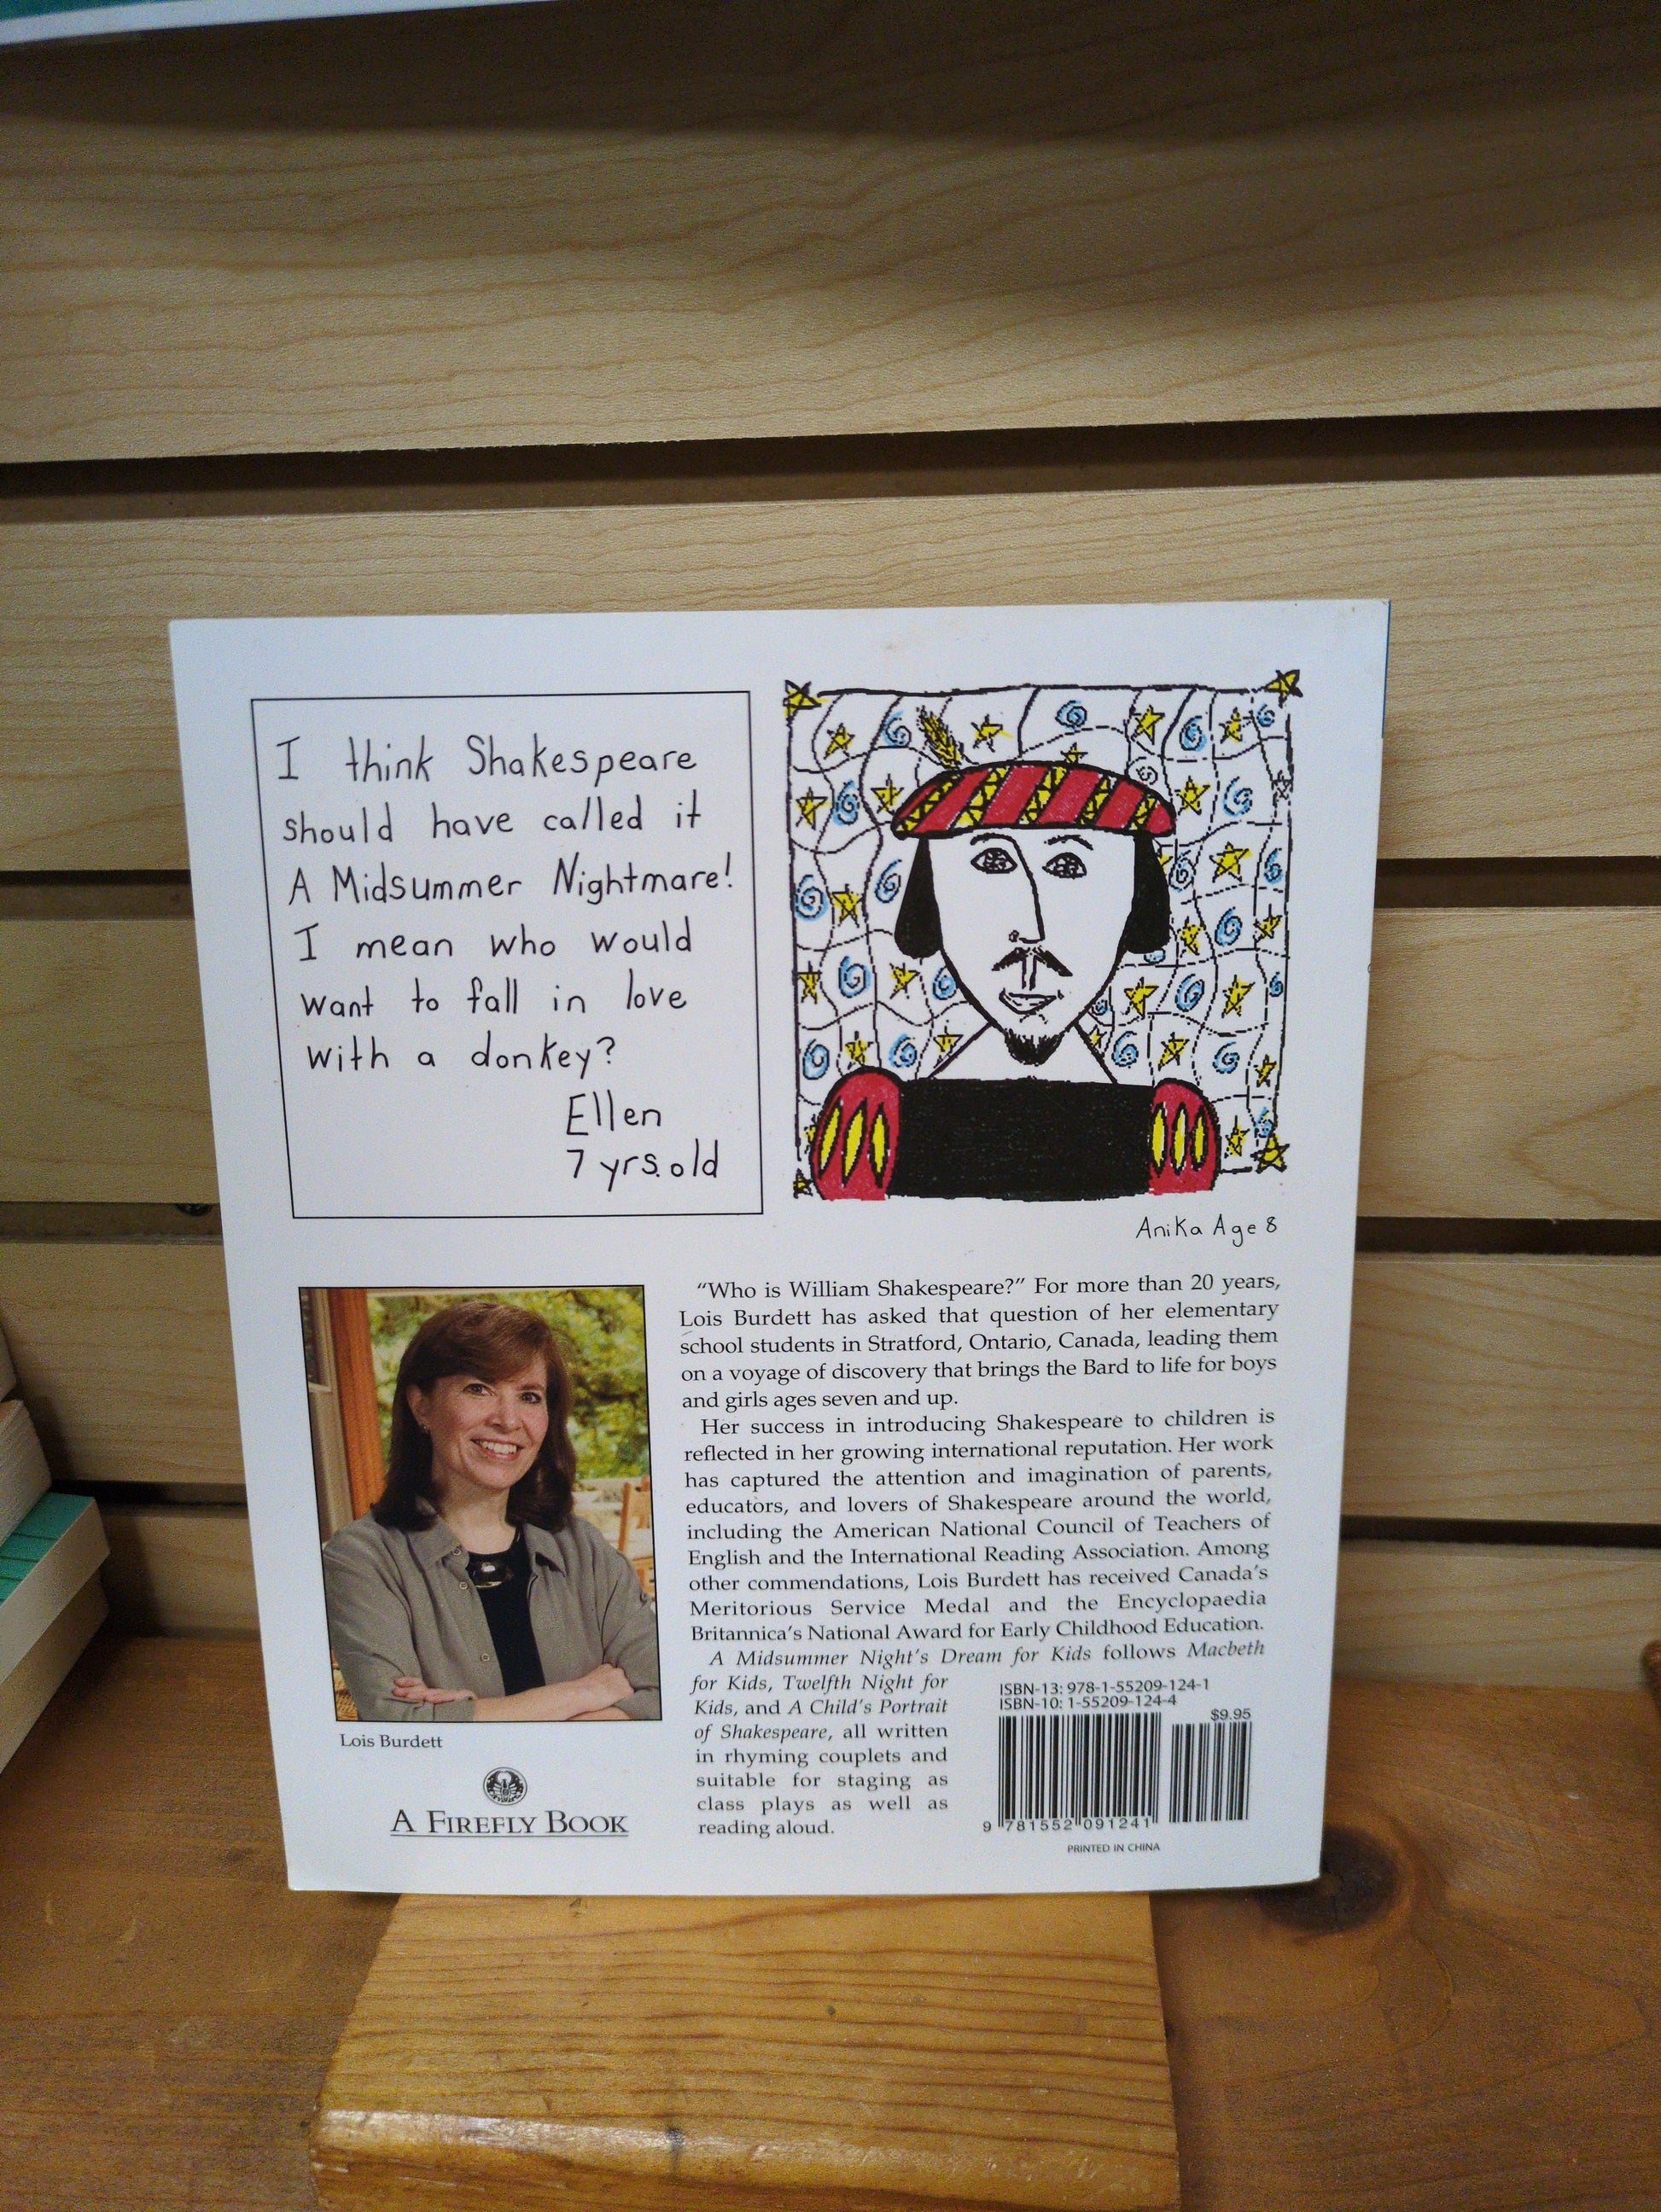 I think Shakespeare
should have called it
A Midsummer Nightmare!
I mean who would
want to fall in love
with a donkey?
Ellen
7 yrs. old
Anika Age 8
“Who is William Shakespeare?” For more than 20 years,
Lois Burdett has asked that question of her elementary
school students in Stratford, Ontario, Canada, leading them
on a voyage of discovery that brings the Bard to life for boys
and girls ages seven and up.
Her success in introducing Shakespeare to children is
reflected in her growing international reputation. Her work
has captured the attention and imagination of parents,
educators, and lovers of Shakespeare around the world,
including the American National Council of Teachers of
English and the International Reading Association. Among
other commendations, Lois Burdett has received Canada’s
Meritorious Service Medal and the Encyclopaedia
Britannica’s National Award for Early Childhood Education.
A Midsummer Night’s Dream for Kids follows Macbeth
for Kids, Twelfth Night for
Kids, and A Child’s Portrait
of Shakespeare, all written
in rhyming couplets and
suitable for staging as
class plays as well as
reading aloud.
Lois Burdett
A FIREFLY BOOK
ISBN-13: 978-1-55209-124-1
ISBN-10: 1-55209-124-4
$9.95
9 781552 091241
PRINTED IN CHINA